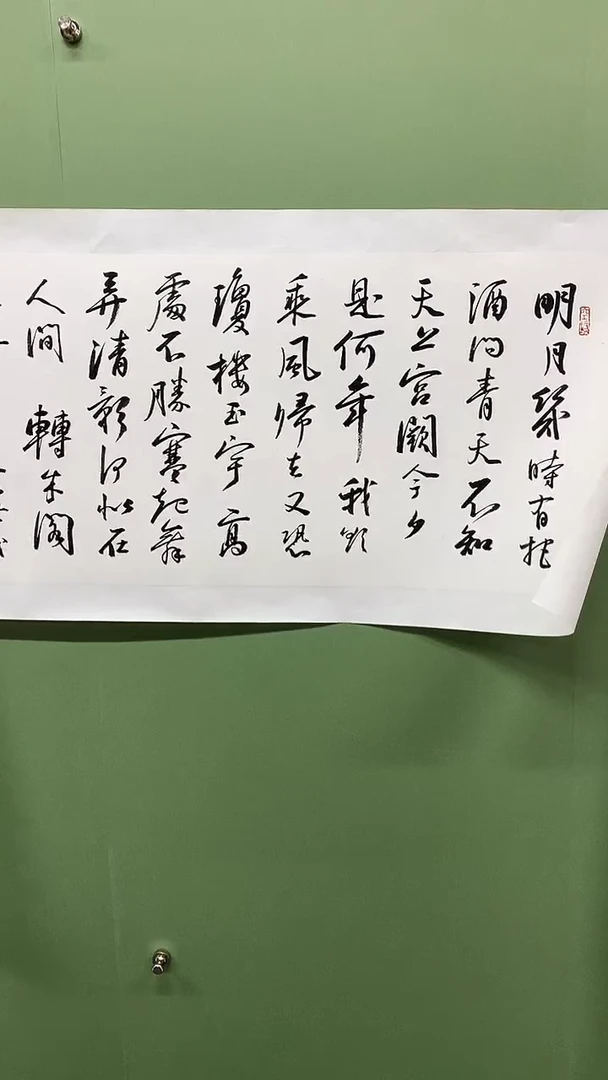 明月幾時有把
酒問青天不知
天上宮闕今夕
是何年我欲
乘風歸去又恐
瓊樓玉宇高
處不勝寒起舞
弄清影何似在
人間 轉朱閣